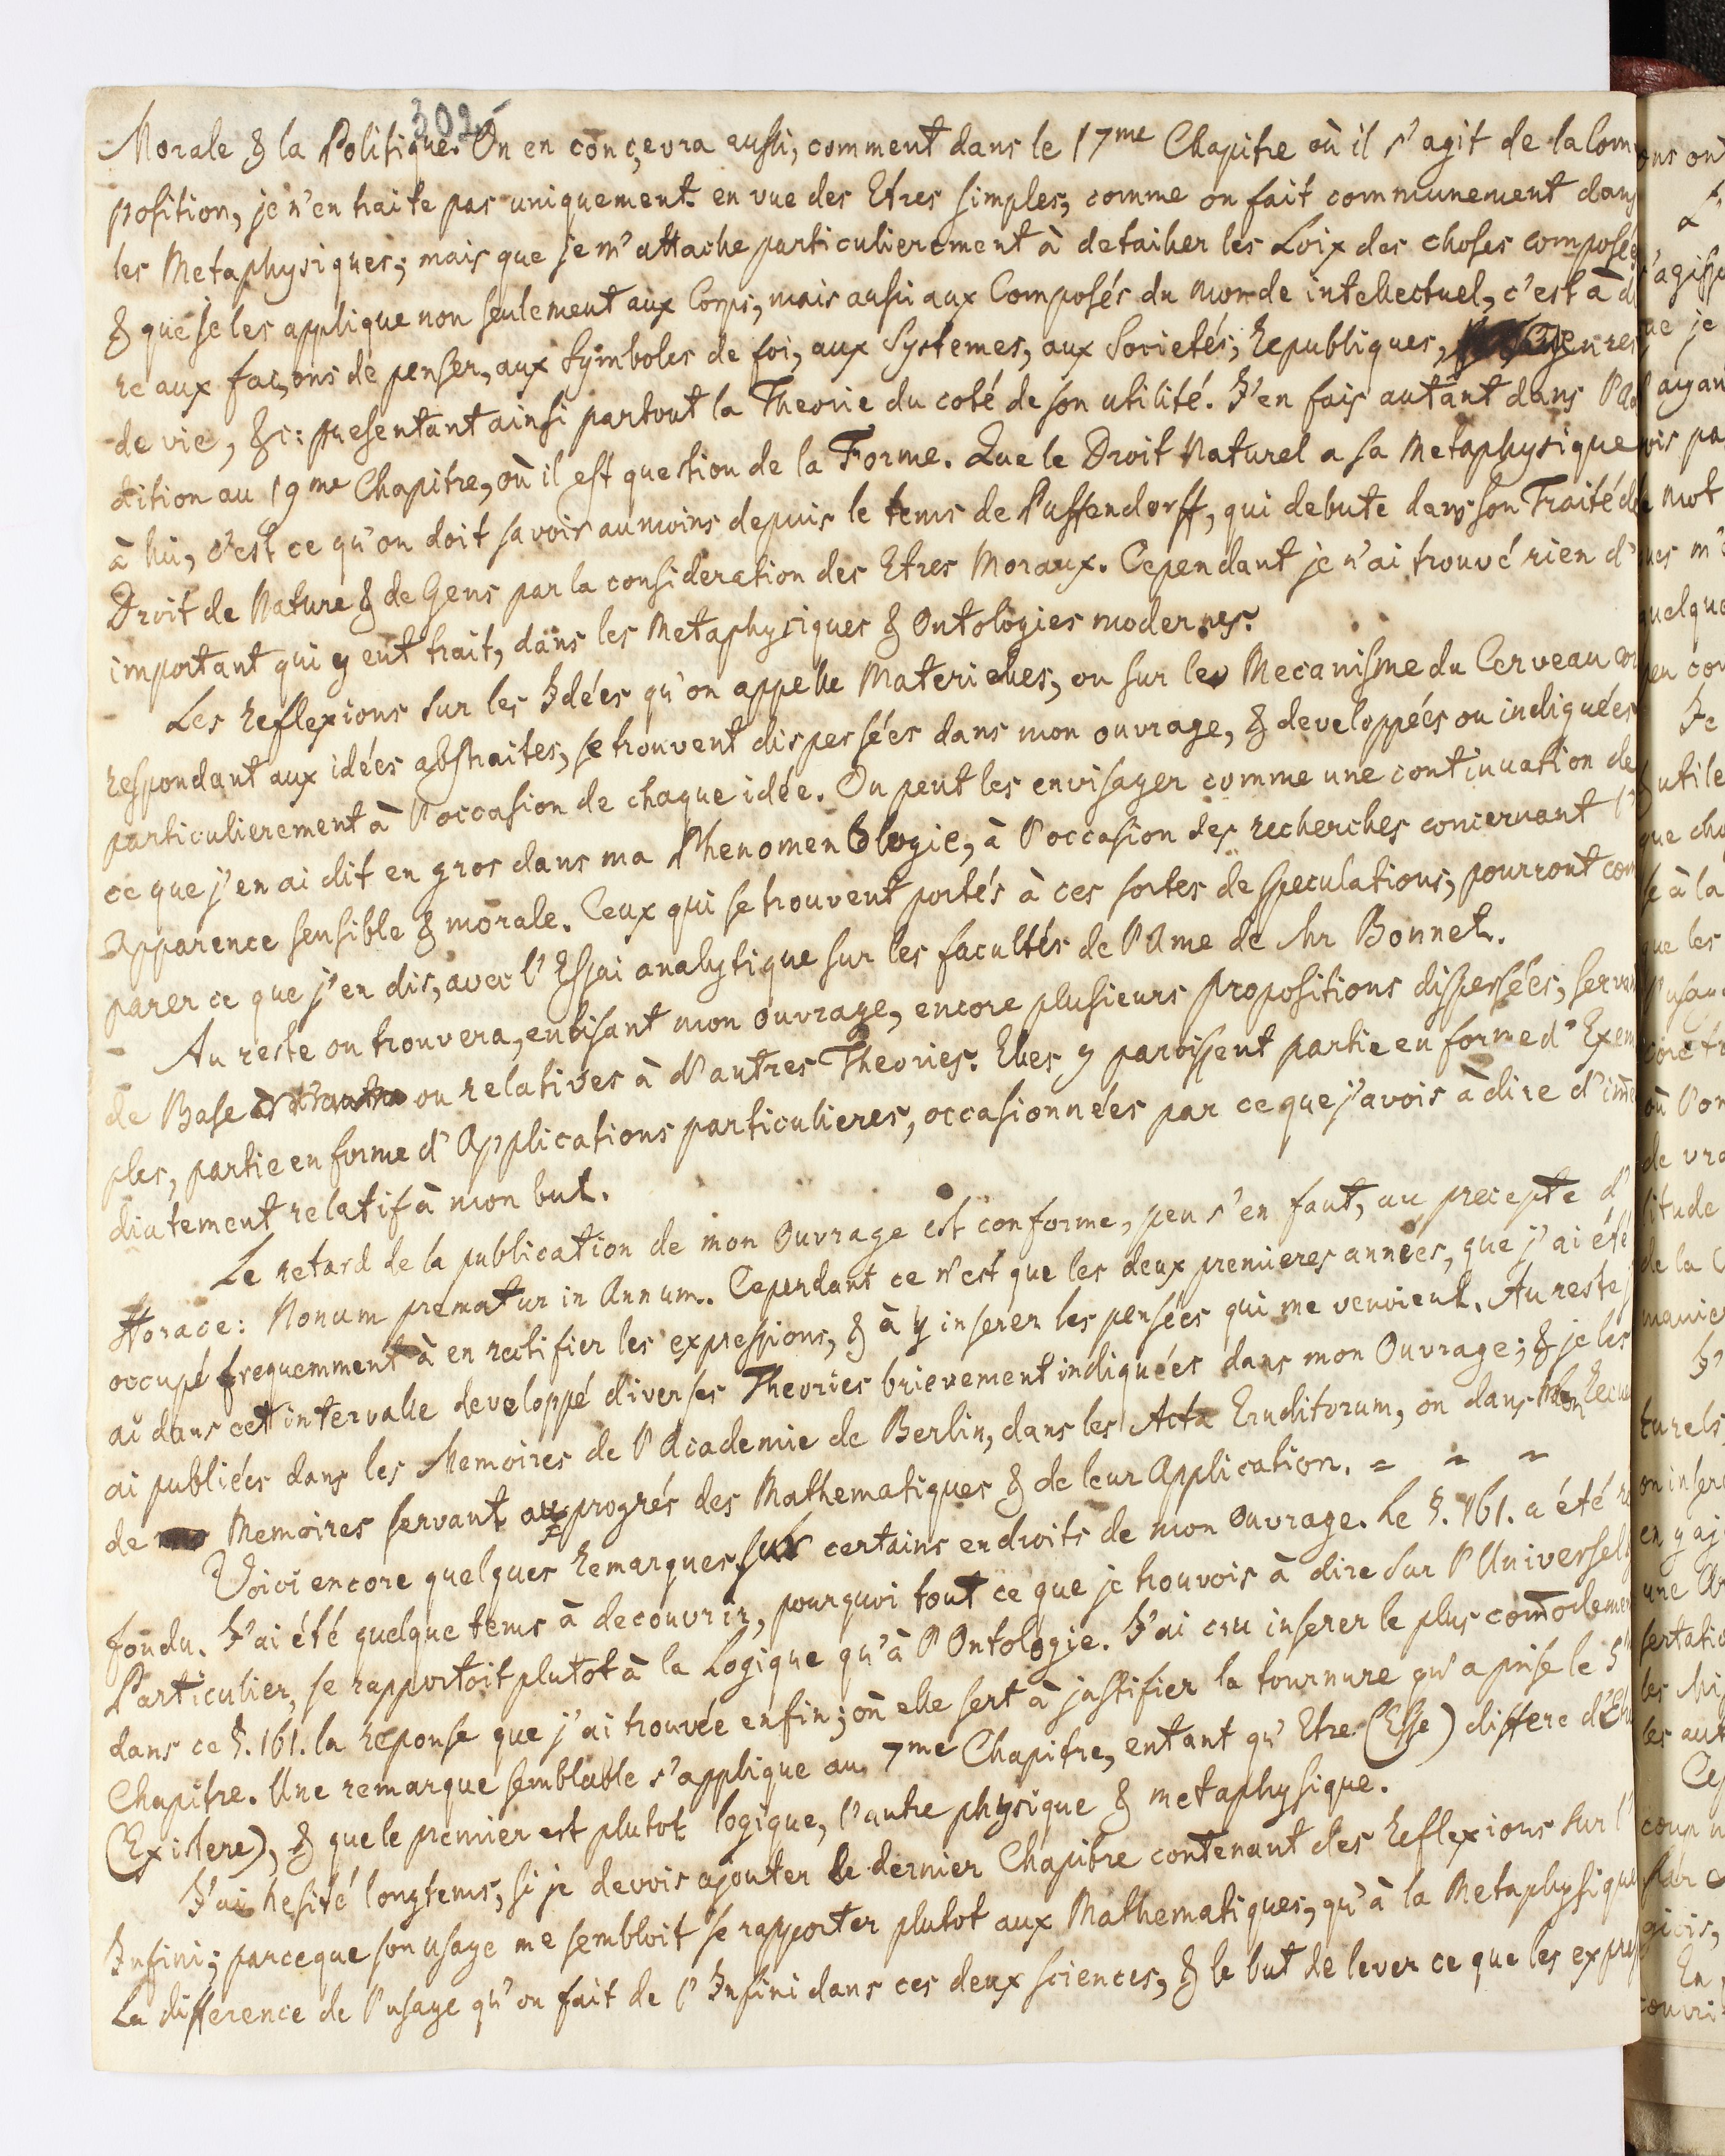 302
Morale & la Politique. On en conçevra aussi, comment dans le 17me Chapitre où il s'agit de la Com
position, je n'en traite pas uniquement en vue des Etres simples, comme on fait communement dans
les Metaphysiques; mais que je m'attache particulierement à detailler les Loix des choses composées
& que je les applique non seulement aux Corps, mais aussi aux Composés du monde intellectuel, c'est à di
re aux façons de penser, aux Symboles de foi, aux Systemes, aux Societés, Republiques, Genres
de vie, &c: presentant ainsi partout la Theorie du coté de son utilité. J'en fais autant dans l'Ad
dition au 19me Chapitre, où il est question de la Forme. Que le Droit Naturel a sa Metaphysique
à lui, c'est ce qu'on doit savoir au moins depuis le tems de Puffendorff, qui debute dans son Traité de
Droit de Nature & de Gens par la consideration des Etres Moraux. Cependant je n'ai trouvé rien d'
important qui y eut trait, dans les Metaphysiques & Ontologies modernes.
Les Reflexions sur les Idées qu'on appelle Materielles, ou sur le Mecanisme du Cerveau cor
respondant aux idées abstraites, se trouvent dispersées dans mon ouvrage, & developpées ou indiquées
particulierement à l'occasion de chaque idée. On peut les envisager comme une continuation de
ce que j'en ai dit en gros dans ma Phenomenologie, à l'occasion des recherches concernant l'
Apparence sensible & morale. Ceux qui se trouvent portés à ces sortes de speculations, pourront com
parer ce que j'en dis, avec l'Essai analytique sur les facultés de l'Ame de Mr Bonnet.
Au reste on trouvera, en lisant mon ouvrage, encore plusieurs propositions dispersées, servant
de Base ou relatives à d'autres Theories. Elles y paroissent partie en forme d'Exem
ples, partie en forme d'Applications particulieres, occasionnées par ce que j'avois à dire d'im̄e
diatement relatif à mon but.
Le retard de la publication de mon Ouvrage est conforme, peu s'en faut, au precepte d'
Horace: Nonum prematur in Annum. Cependant ce n'est que les deux premieres années, que j'ai été
occupé frequemment à en rectifier les expressions, & à y inserer les pensées qui me venoient. Au reste j'
ai dans cet intervalle developpé diverses Theories brievement indiquées dans mon Ouvrage; & je les
ai publiées dans les Memoires de l'Academie de Berlin, dans les Acta Eruditorum, ou dans mon Recueil
de Memoires servant aux progrés des Mathematiques & de leur Application. = = =
Voici encore quelques Remarques sur certains endroits de mon Ouvrage. Le §. 161. a été re
fondu. J'ai été quelque tems à decouvrir, pourquoi tout ce que je trouvois à dire sur l'Universel &
Particulier, se rapportoit plutot à la Logique qu'à l'Ontologie. J'ai cru inserer le plus com̄odement
dans ce §. 161. la reponse que j'ai trouvée enfin; où elle sert à justifier la tournure qu'a prise le 5me
Chapitre. Une remarque semblable s'applique au 7me Chapitre, entant qu'Etre (Esse) differe d'Etre
(Existere), & que le premier est plutot logique, l'autre physique & metaphysique.
J'ai hesité longtems, si je devois ajouter le dernier Chapitre contenant des Reflexions sur l'
Infini; parceque son usage me sembloit se rapporter plutot aux Mathematiques, qu'à la Metaphysique
La difference de l'usage qu'on fait de l'Infini dans ces deux sciences, & le but de lever ce que les expres